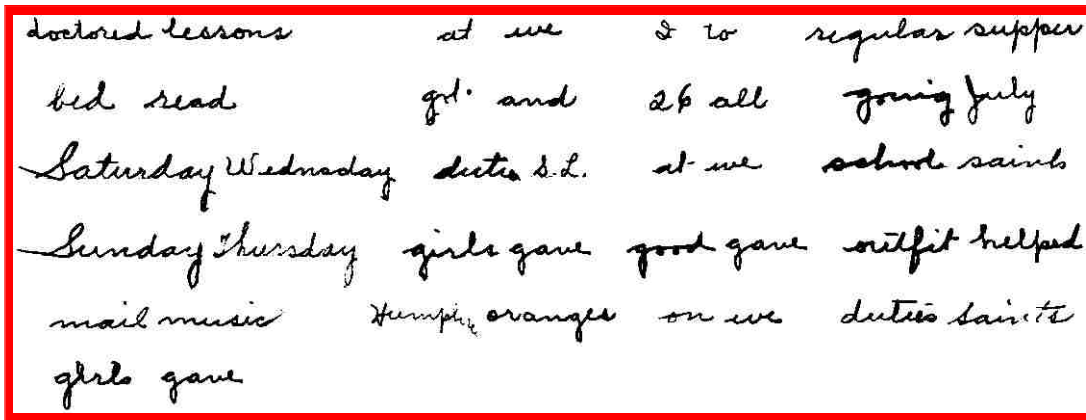 doctored lessons at we I to regular supper
bed read grl. and 26 all going July
Saturday Wednesday duties S.L. at we school saints
Sunday Thursday girls gave good gave outfit helped
mail music oranges on we duties saints
girls gave